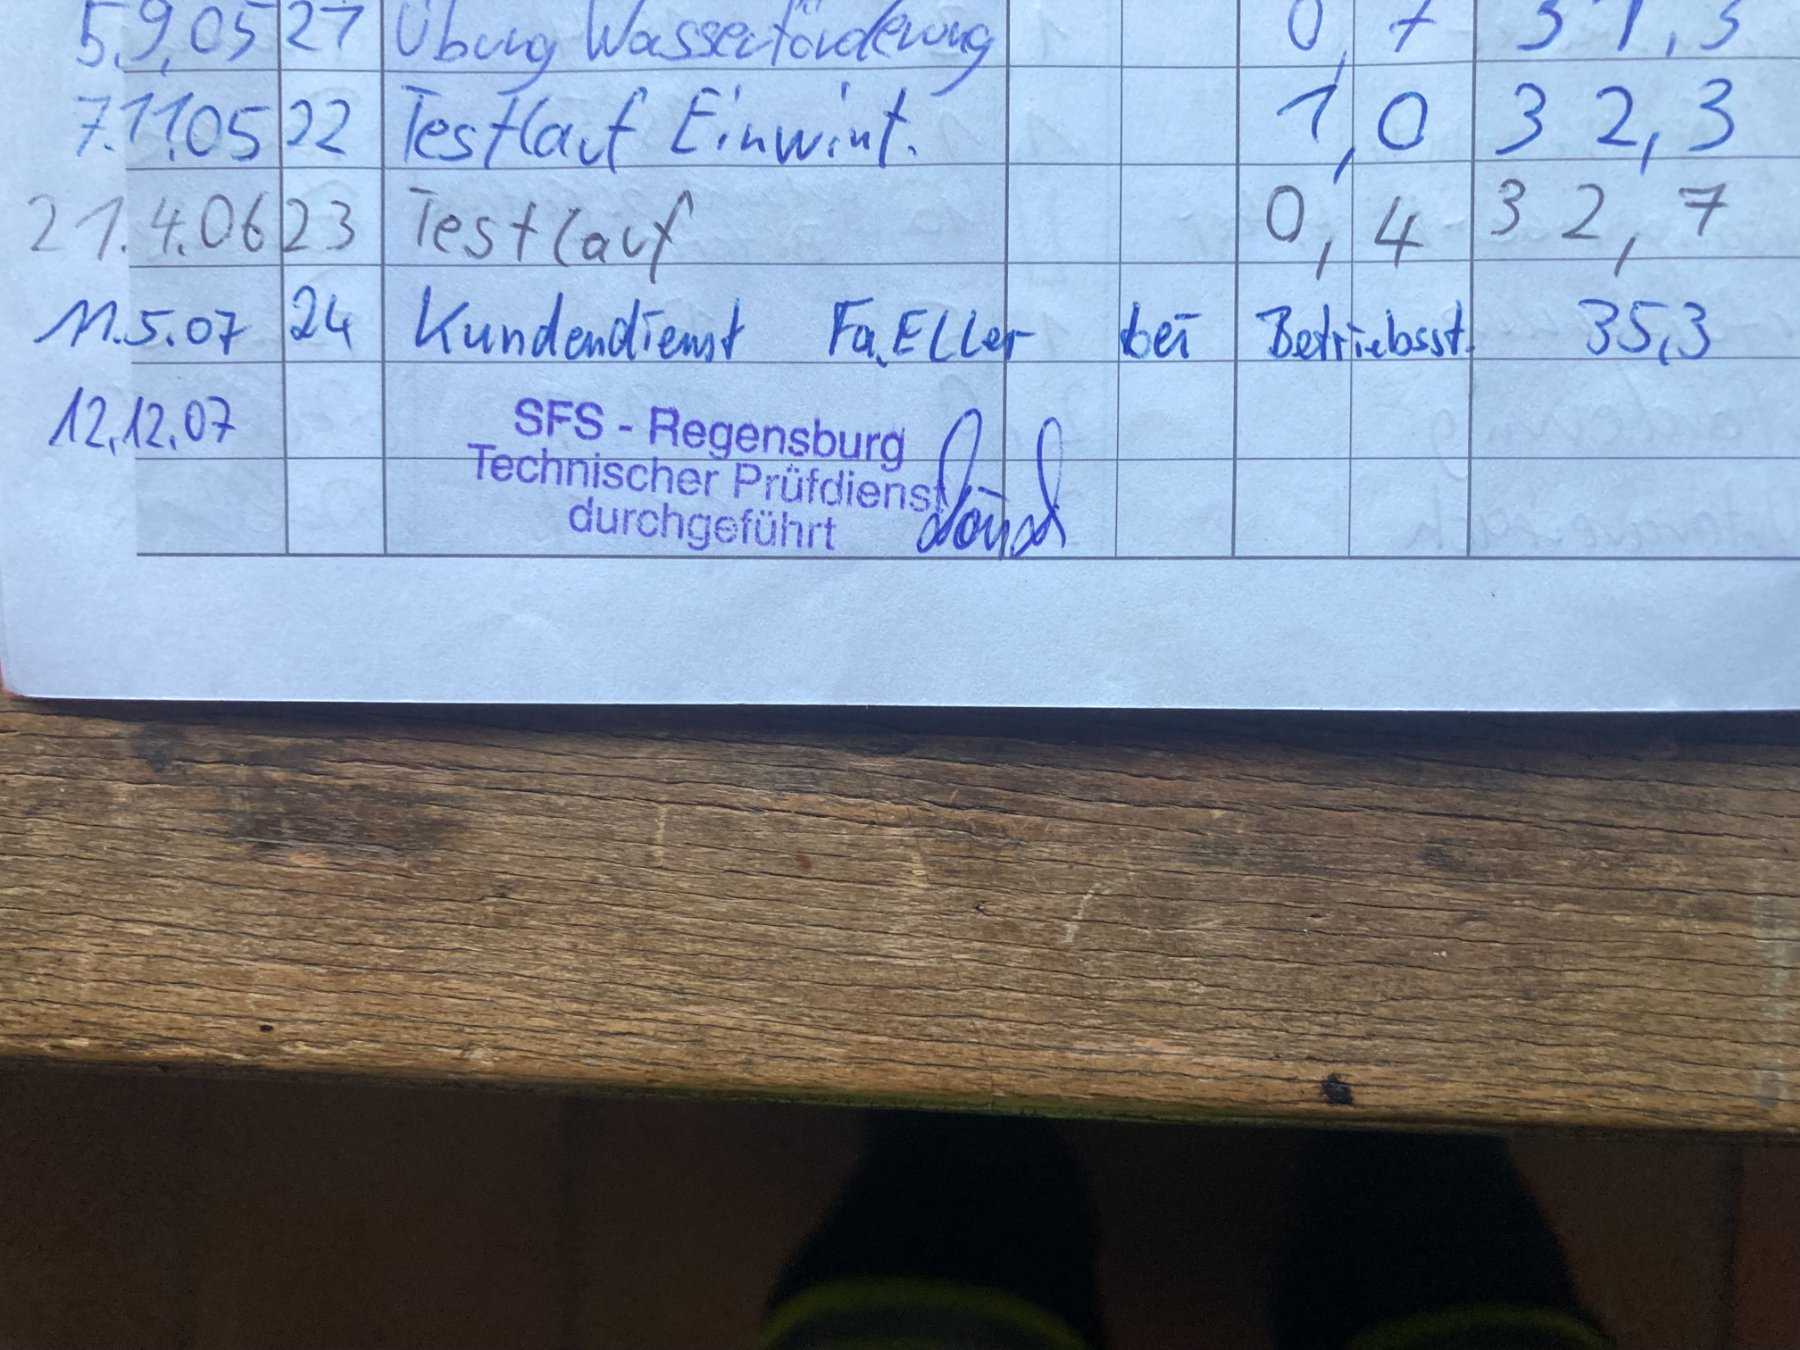 5.9.05 21 Übung Wasserförderung 0,7 31,3
7.11.05 22 Testlauf Einwint. 1,0 32,3
21.4.06 23 Testlauf 0,4 32,7
11.5.07 24 Kundendienst Fa. Eller bei Betriebsst. 35,3
12.12.07 SFS - Regensburg
Technischer Prüfdienst
durchgeführt